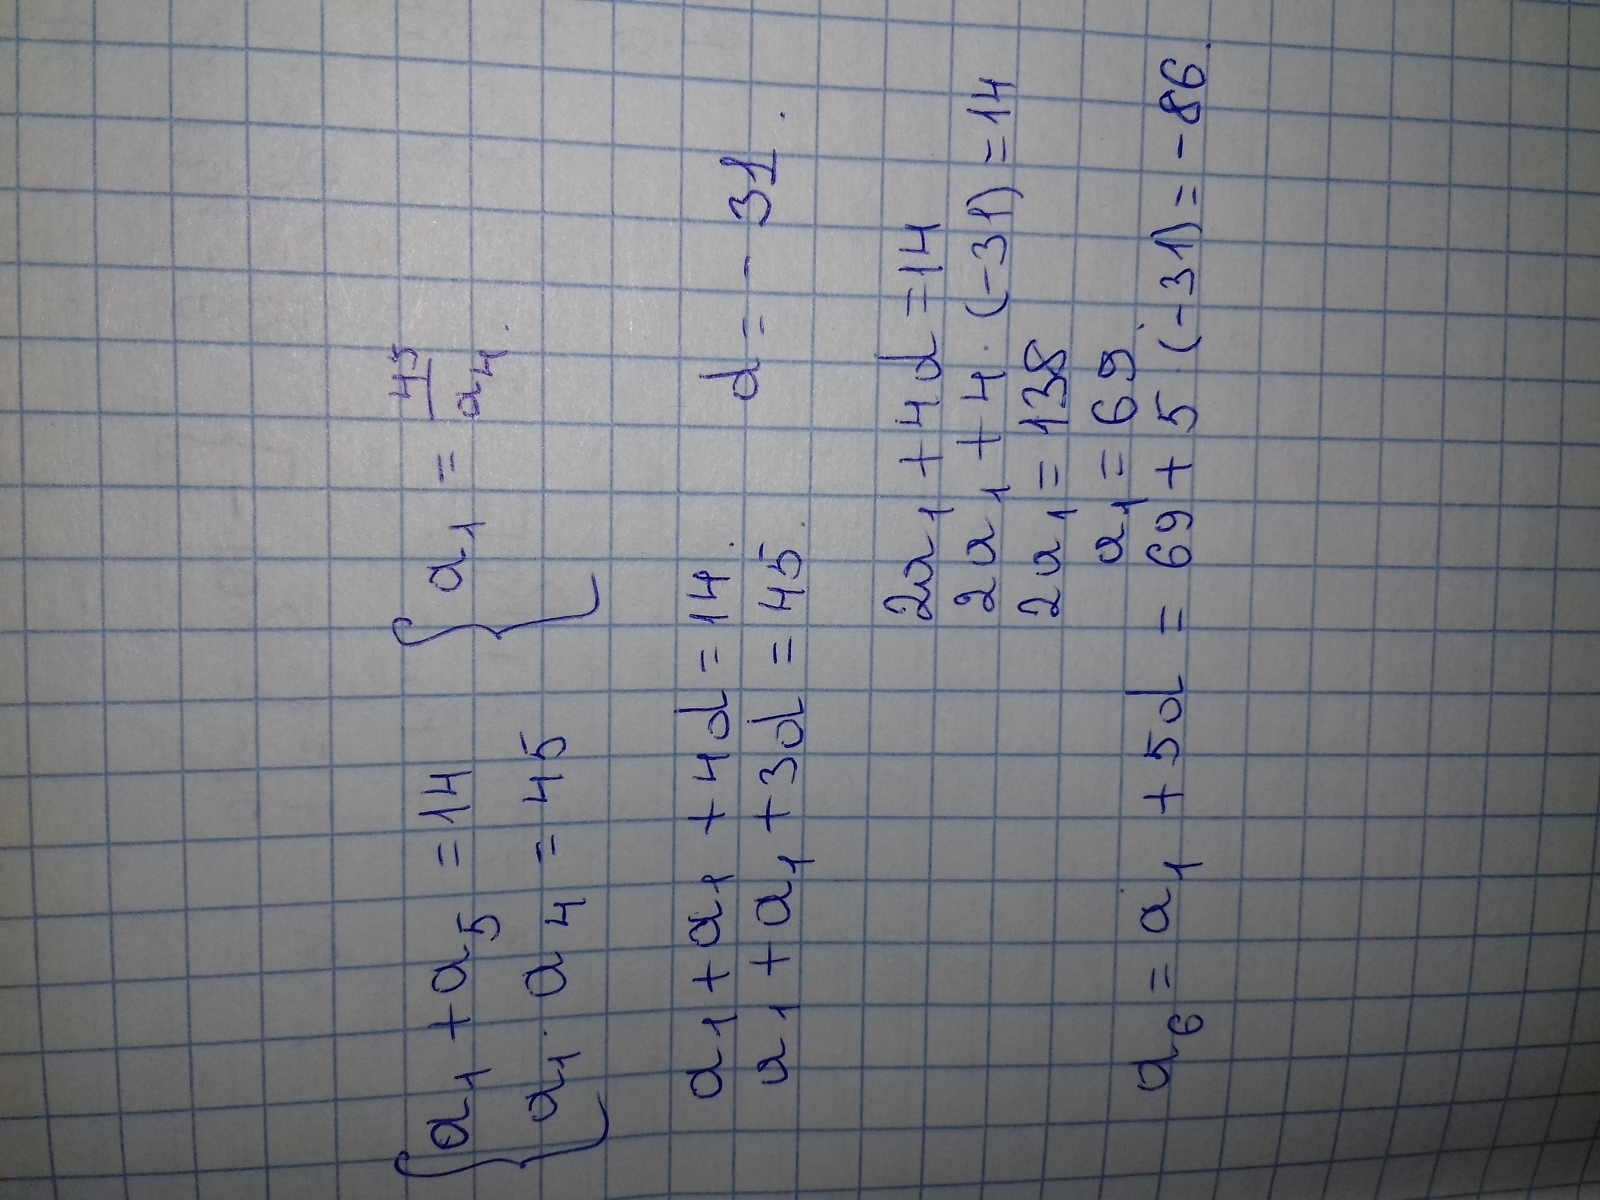 { a₁ + a₅ = 14 { a₁ = 45/a₄.
a₁ · a₄ = 45
a₁ + a₁ + 4d = 14.
a₁ + a₁ + 3d = 45. d = - 31.
2a₁ + 4d = 14
2a₁ + 4 · (-31) = 14
2a₁ = 138
a₁ = 69
a₆ = a₁ + 5d = 69 + 5 · (-31) = -86.